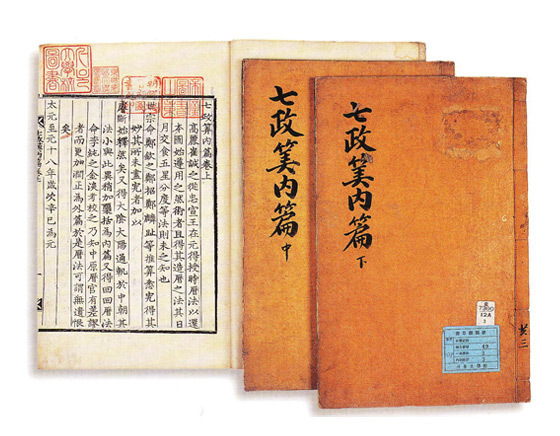 七政筭内篇卷上
高麗崔誠之從忠宣王在元得授時曆法以還
本國始遵用之然術者且得其造曆之法其日
月交食五星分度等法則未之知也
世宗命鄭欽之鄭招鄭麟趾等推算悉究得其
妙其所未盡究者加以
睿斷始釋然矣又得大陰大陽通軌於中朝其
法小與此異稍加檃括爲内篇又得回回曆法
命李純之金淡考校之乃知中原曆官有差謬
者而更加潤正爲外篇於是曆法可謂無遺恨
矣
太元至元十八年歲次辛巳爲元
七政筭内篇 中
七政筭内篇 下